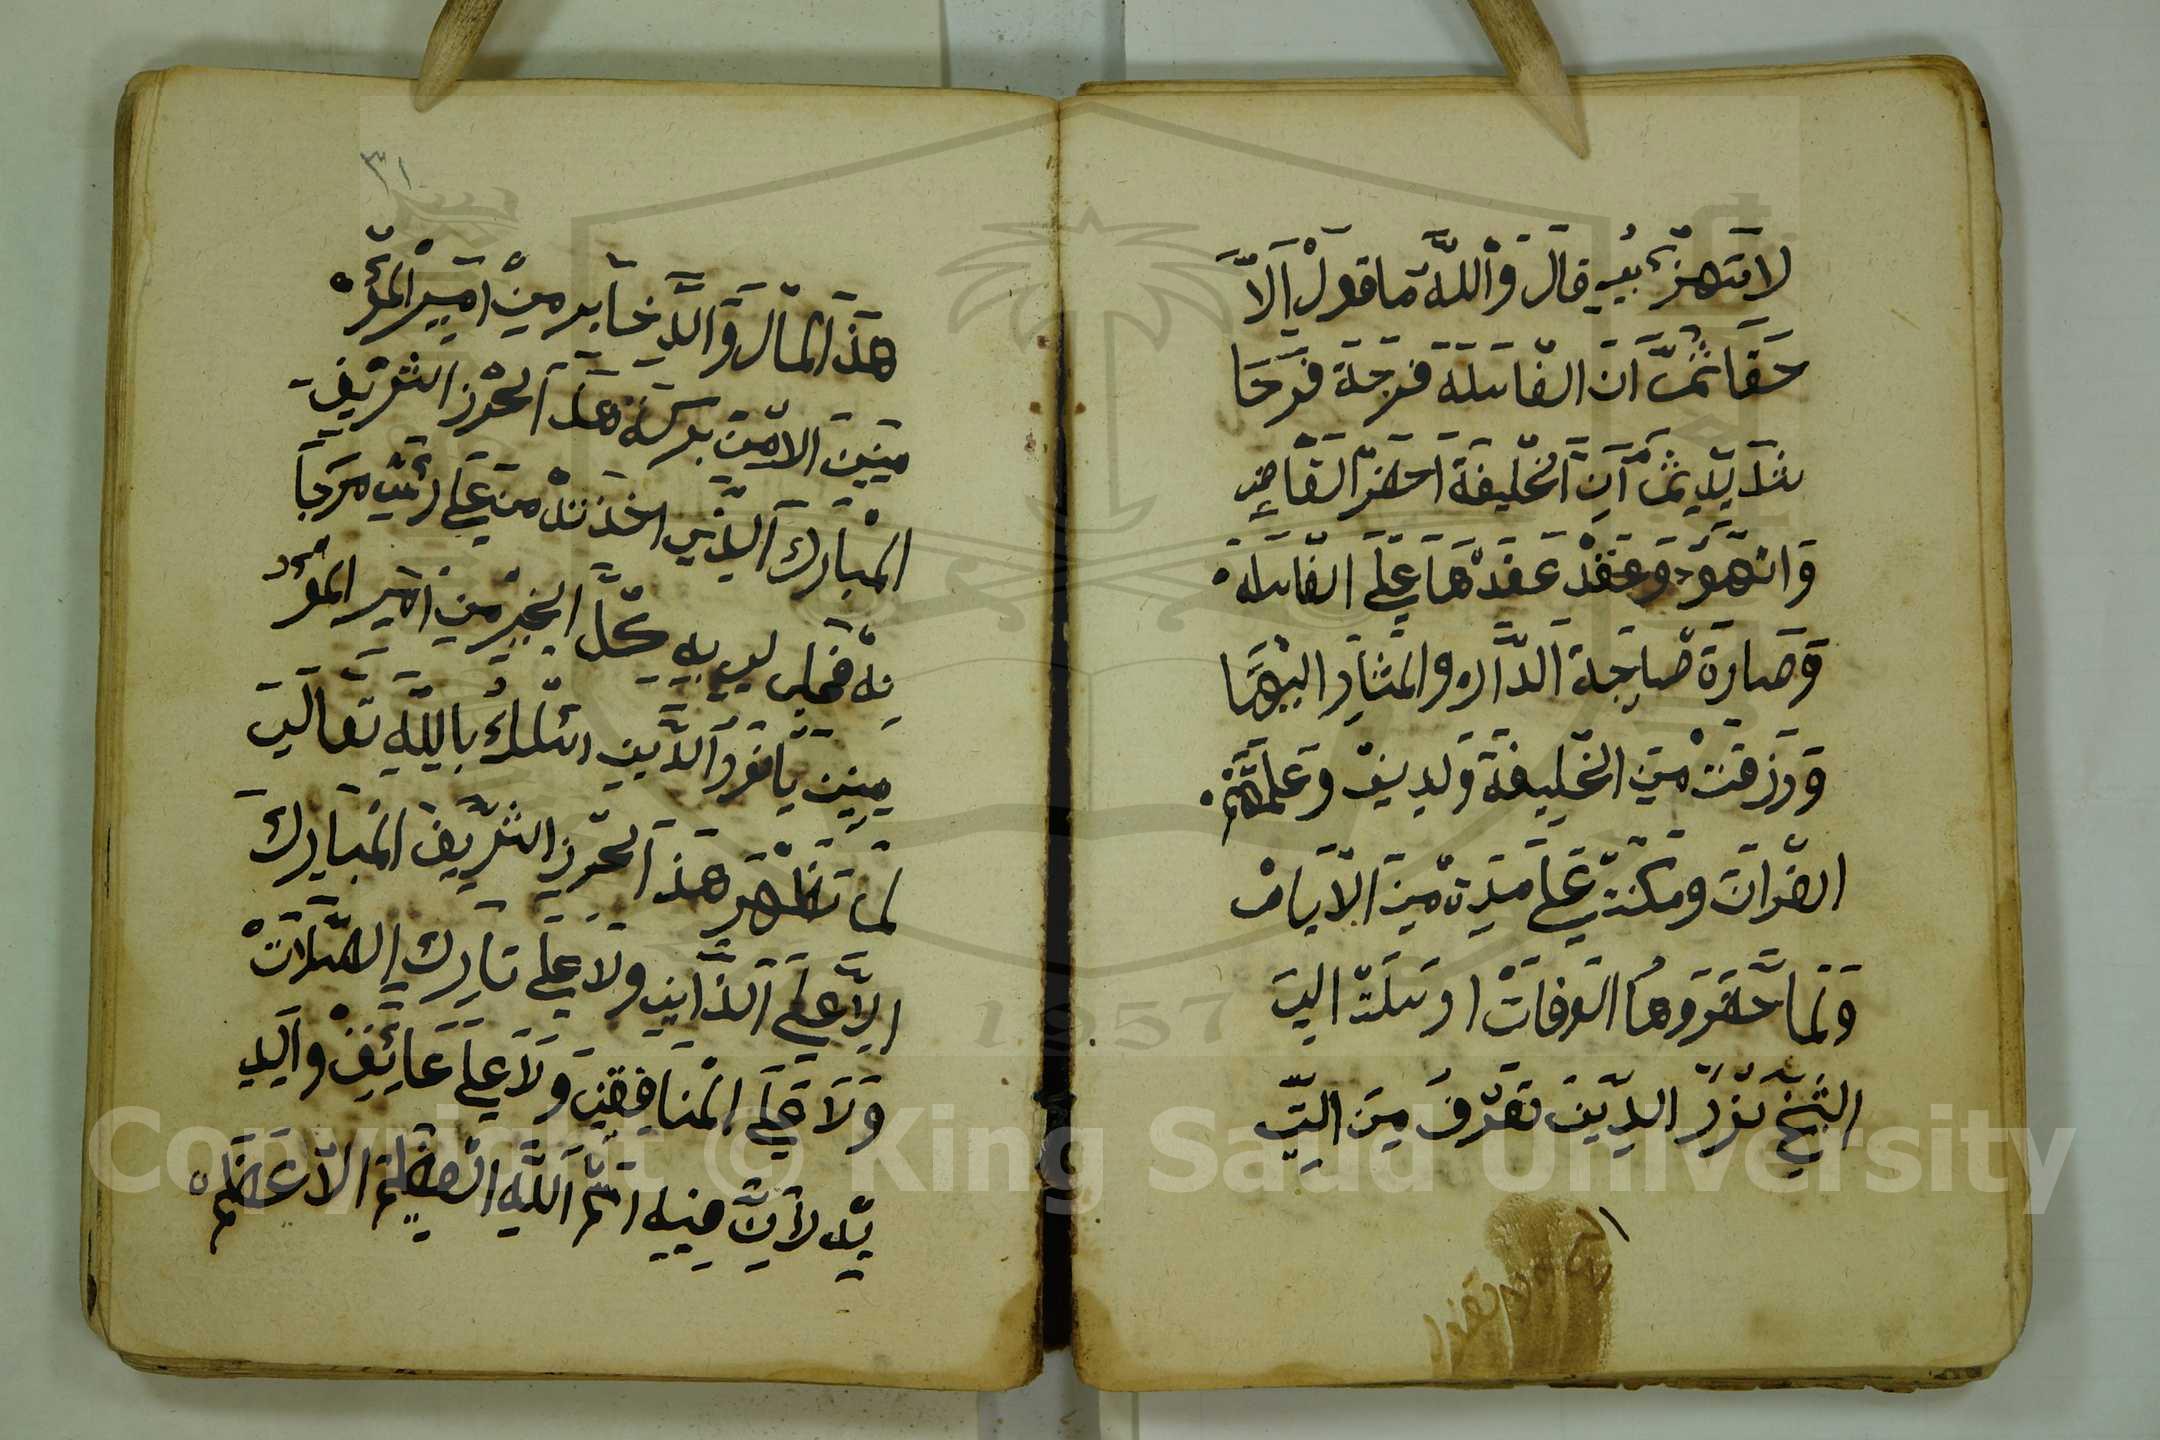 لا تهزئ بي قال والله ما قول الا
حقا ثم ان الفاسله فرجة فرحا
شديد ثم ان الخليفة احضر القاضي
والشهود وعقد عقدها علي الفاسله
وصارة صاحبة الدار والمشار اليها
ورزقت من الخليفة ولدين وعلمتهم
القران ومكثت علي مدة من الايام
ولما حضروها الوفات ارسلت الي
الشيخ نور الدين تعرف من التي
٣١
هذا المال والذخاير من امير المؤ
منين الامين بركة هذا الحرز الشريف
المبارك الذي اخذته من علي رئس مرجا
نه فحصل لي به كل الخير من امير المؤ
منين يا نور الدين اسئلك بالله تعالي
لما تظهر هذا الحرز الشريف المبارك
الا علي الذاني ولا علي تارك الصلات
ولا علي المنافقين ولا علي عائق والد
يه لان فيه اسم الله العظيم الاعظم
Copyright © King Saud University
1957